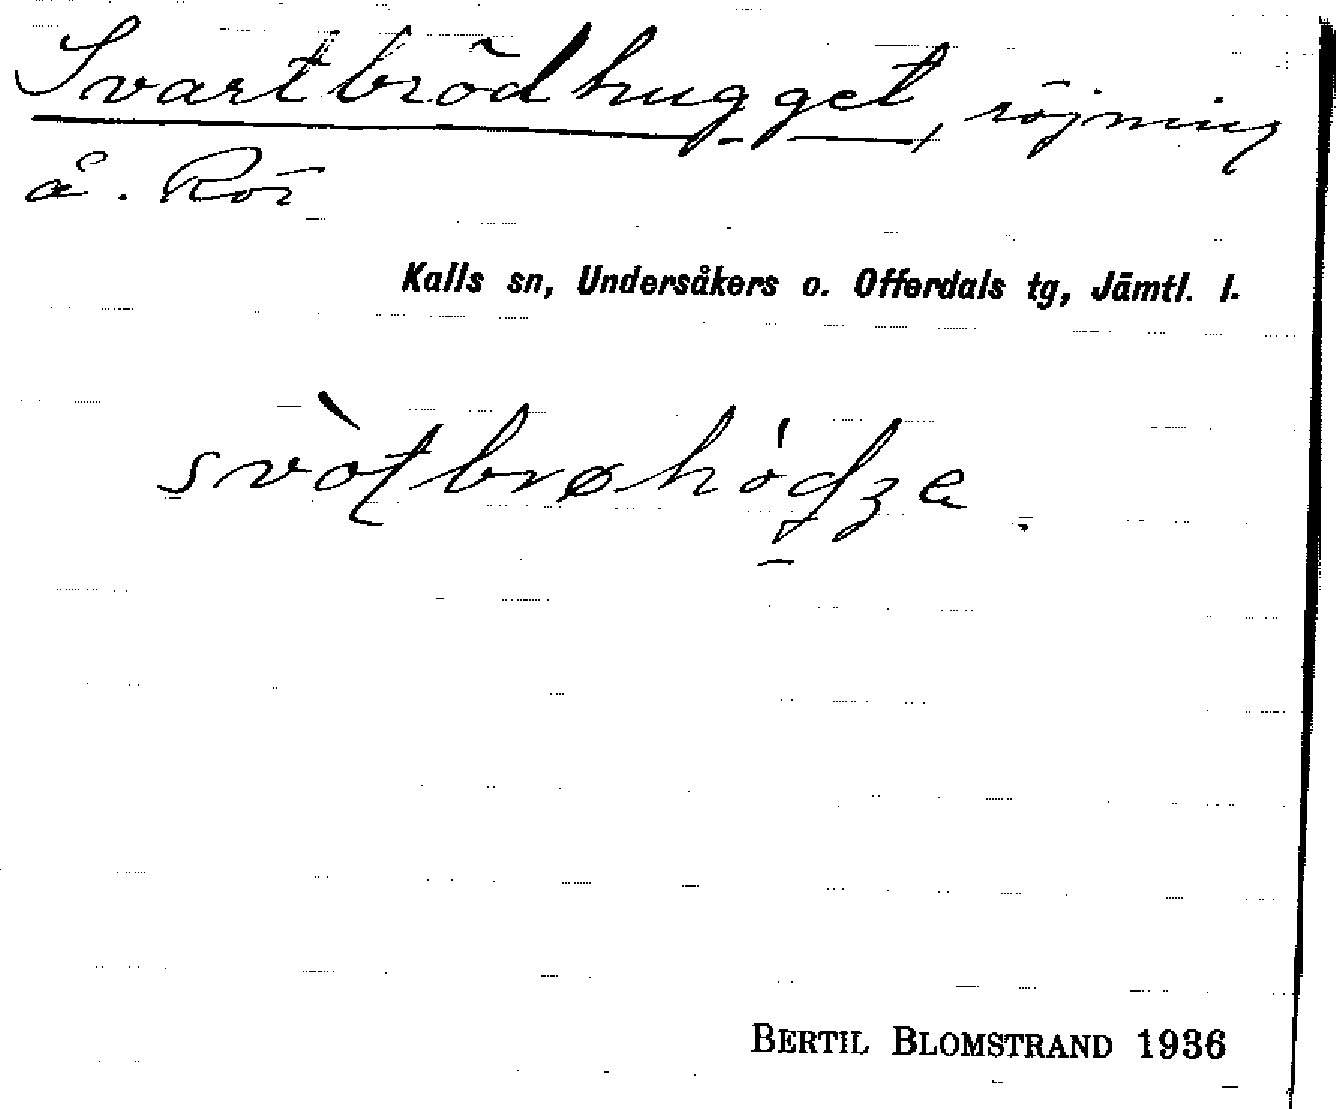 Svartbrödhugget, röjning
å. Rör
Kalls sn, Undersåkers o. Offerdals tg, Jämtl. l.
svòtbrøhóʤe.
BERTIL BLOMSTRAND 1936